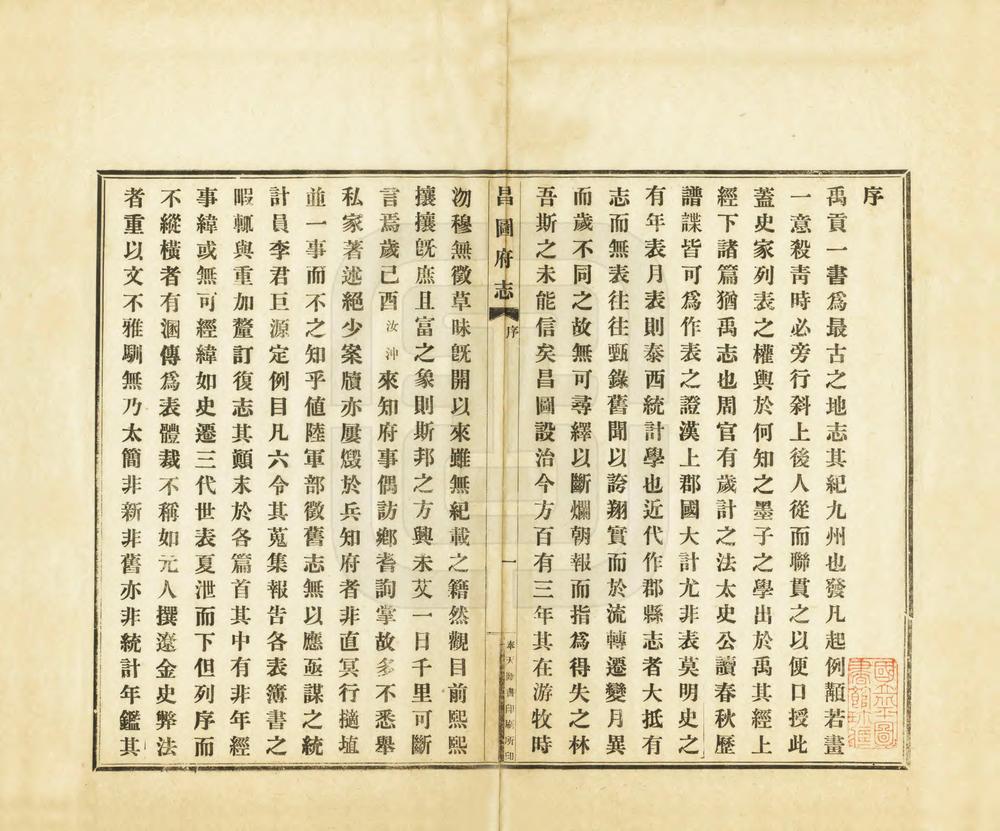 序
禹貢一書爲最古之地志其紀九州也發凡起例顜若畫
一意殺靑時必旁行斜上後人從而聯貫之以便口授此
蓋史家列表之權輿於何知之墨子之學出於禹其經上
經下諸篇猶禹志也周官有歲計之法太史公讀春秋歷
譜諜皆可爲作表之證漢上郡國大計尤非表莫明史之
有年表月表則泰西統計學也近代作郡縣志者大抵有
志而無表往往甄錄舊聞以誇翔實而於流轉遷變月異
而歲不同之故無可尋繹以斷爛朝報而指爲得失之林
吾斯之未能信矣昌圖設治今方百有三年其在游牧時
昌圖府志 序 一 奉天圖書印刷所印
沕穆無徵草昧旣開以來雖無紀載之籍然觀目前熙熙
攘攘旣庶且富之象則斯邦之方興未艾一日千里可斷
言焉歲己酉汝沖來知府事偶訪鄕耆詢掌故多不悉舉
私家著述絕少案牘亦屢燬於兵知府者非直冥行擿埴
並一事而不之知乎値陸軍部徵舊志無以應亟謀之統
計員李君巨源定例目凡六令其蒐集報告各表簿書之
暇輒與重加釐訂復志其顚末於各篇首其中有非年經
事緯或無可經緯如史遷三代世表夏泄而下但列序而
不縱橫者有溷傳爲表體裁不稱如元人撰遼金史弊法
者重以文不雅馴無乃太簡非新非舊亦非統計年鑑其